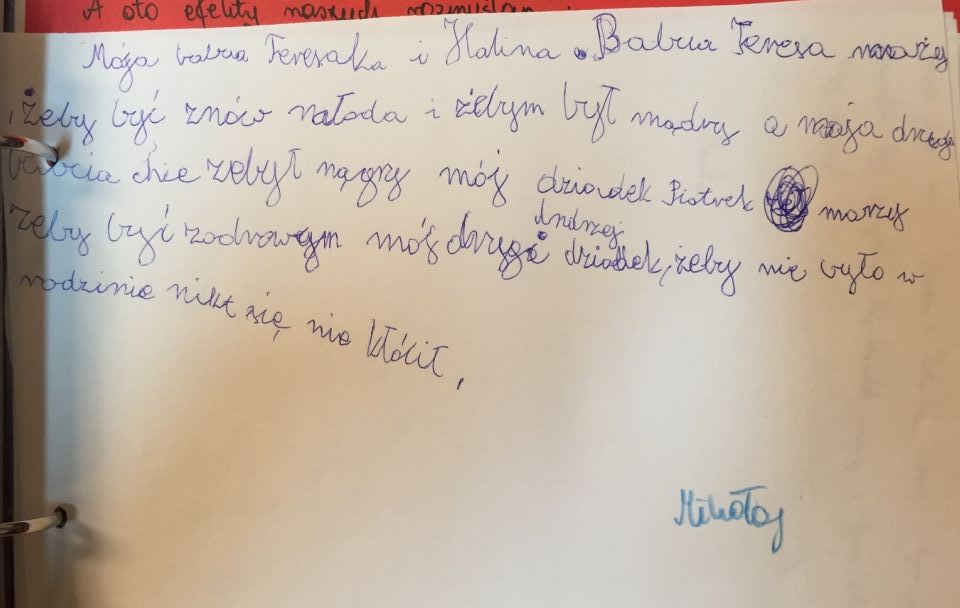 A oto efekty naszych rozmyślań :
Moja babcia Teresaka i Halina. Babcia Teresa marzy
żeby być znów młoda i żebym był mądry a moja druga
babcia chie żebył mągry mój dziadek Piotrek marzy
żeby być zodrowym mój drygi Andrzej dziadek, żeby nie było w
rodzinie nikt się nie kłócił,
Mikołaj